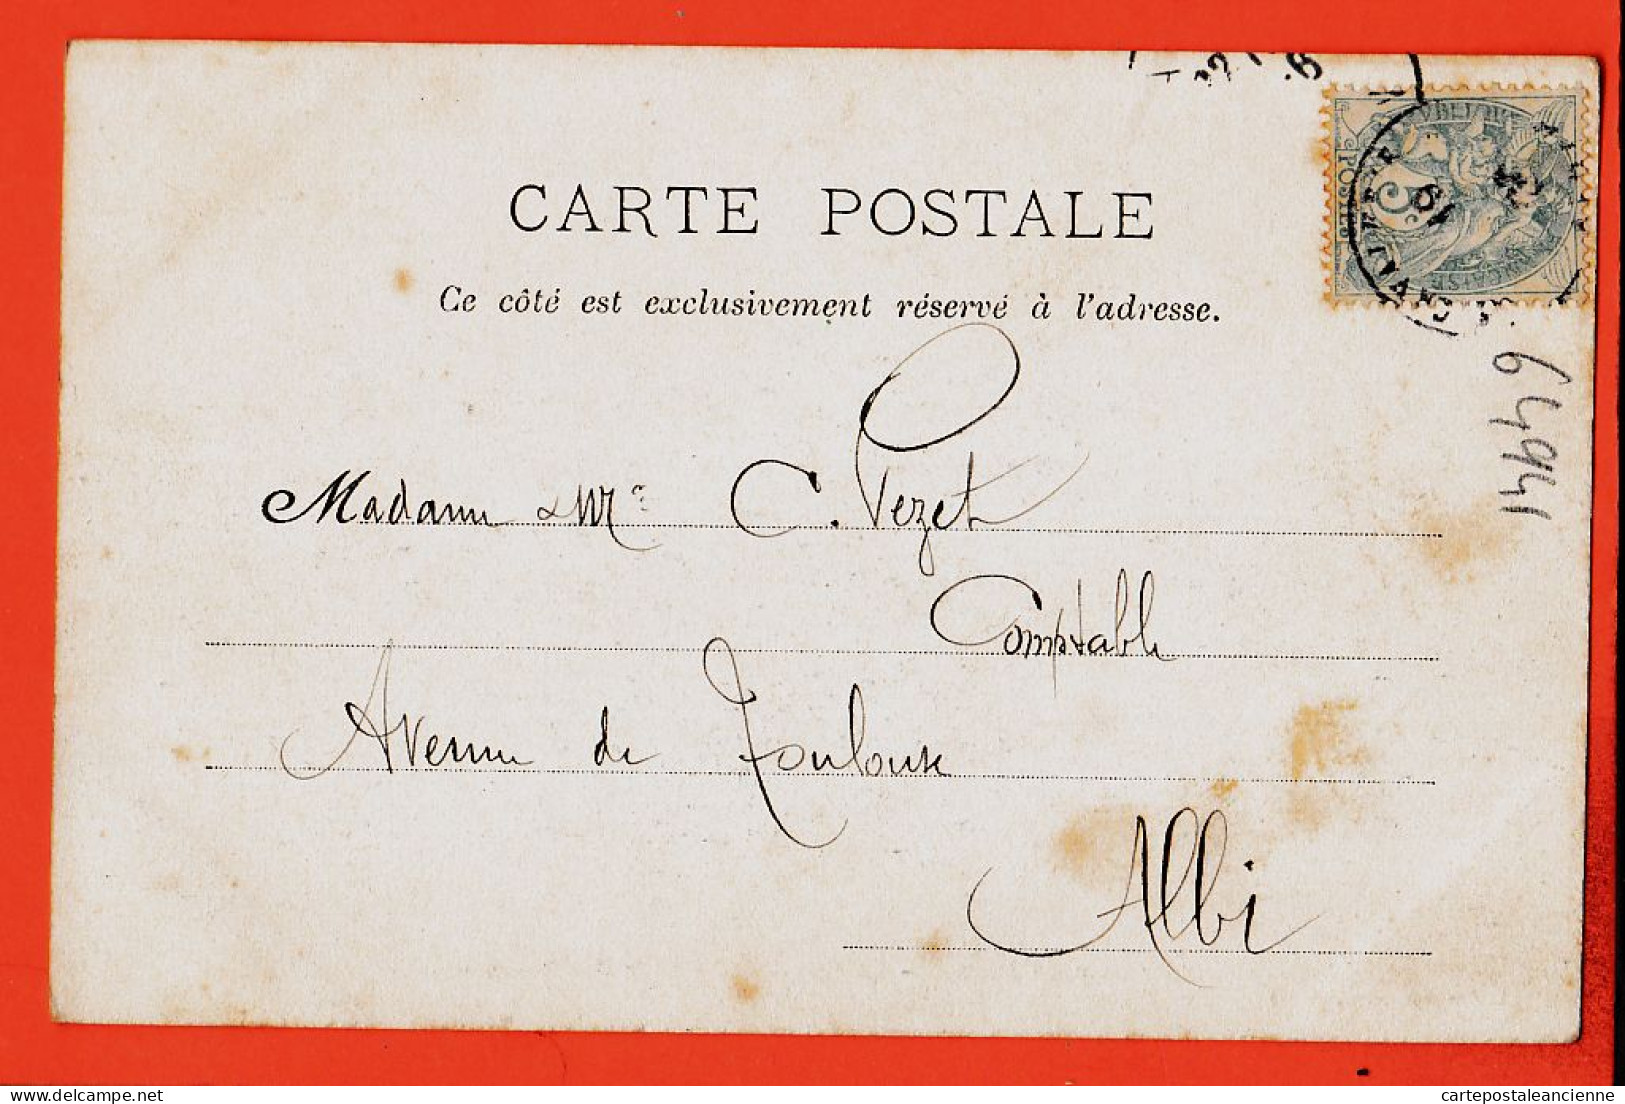 CARTE POSTALE
Ce côté est exclusivement réservé à l'adresse.
6494
Madame & Mr C. Pezet
Comptable
Avenue de Toulouse
Albi
cartepostaleancienne